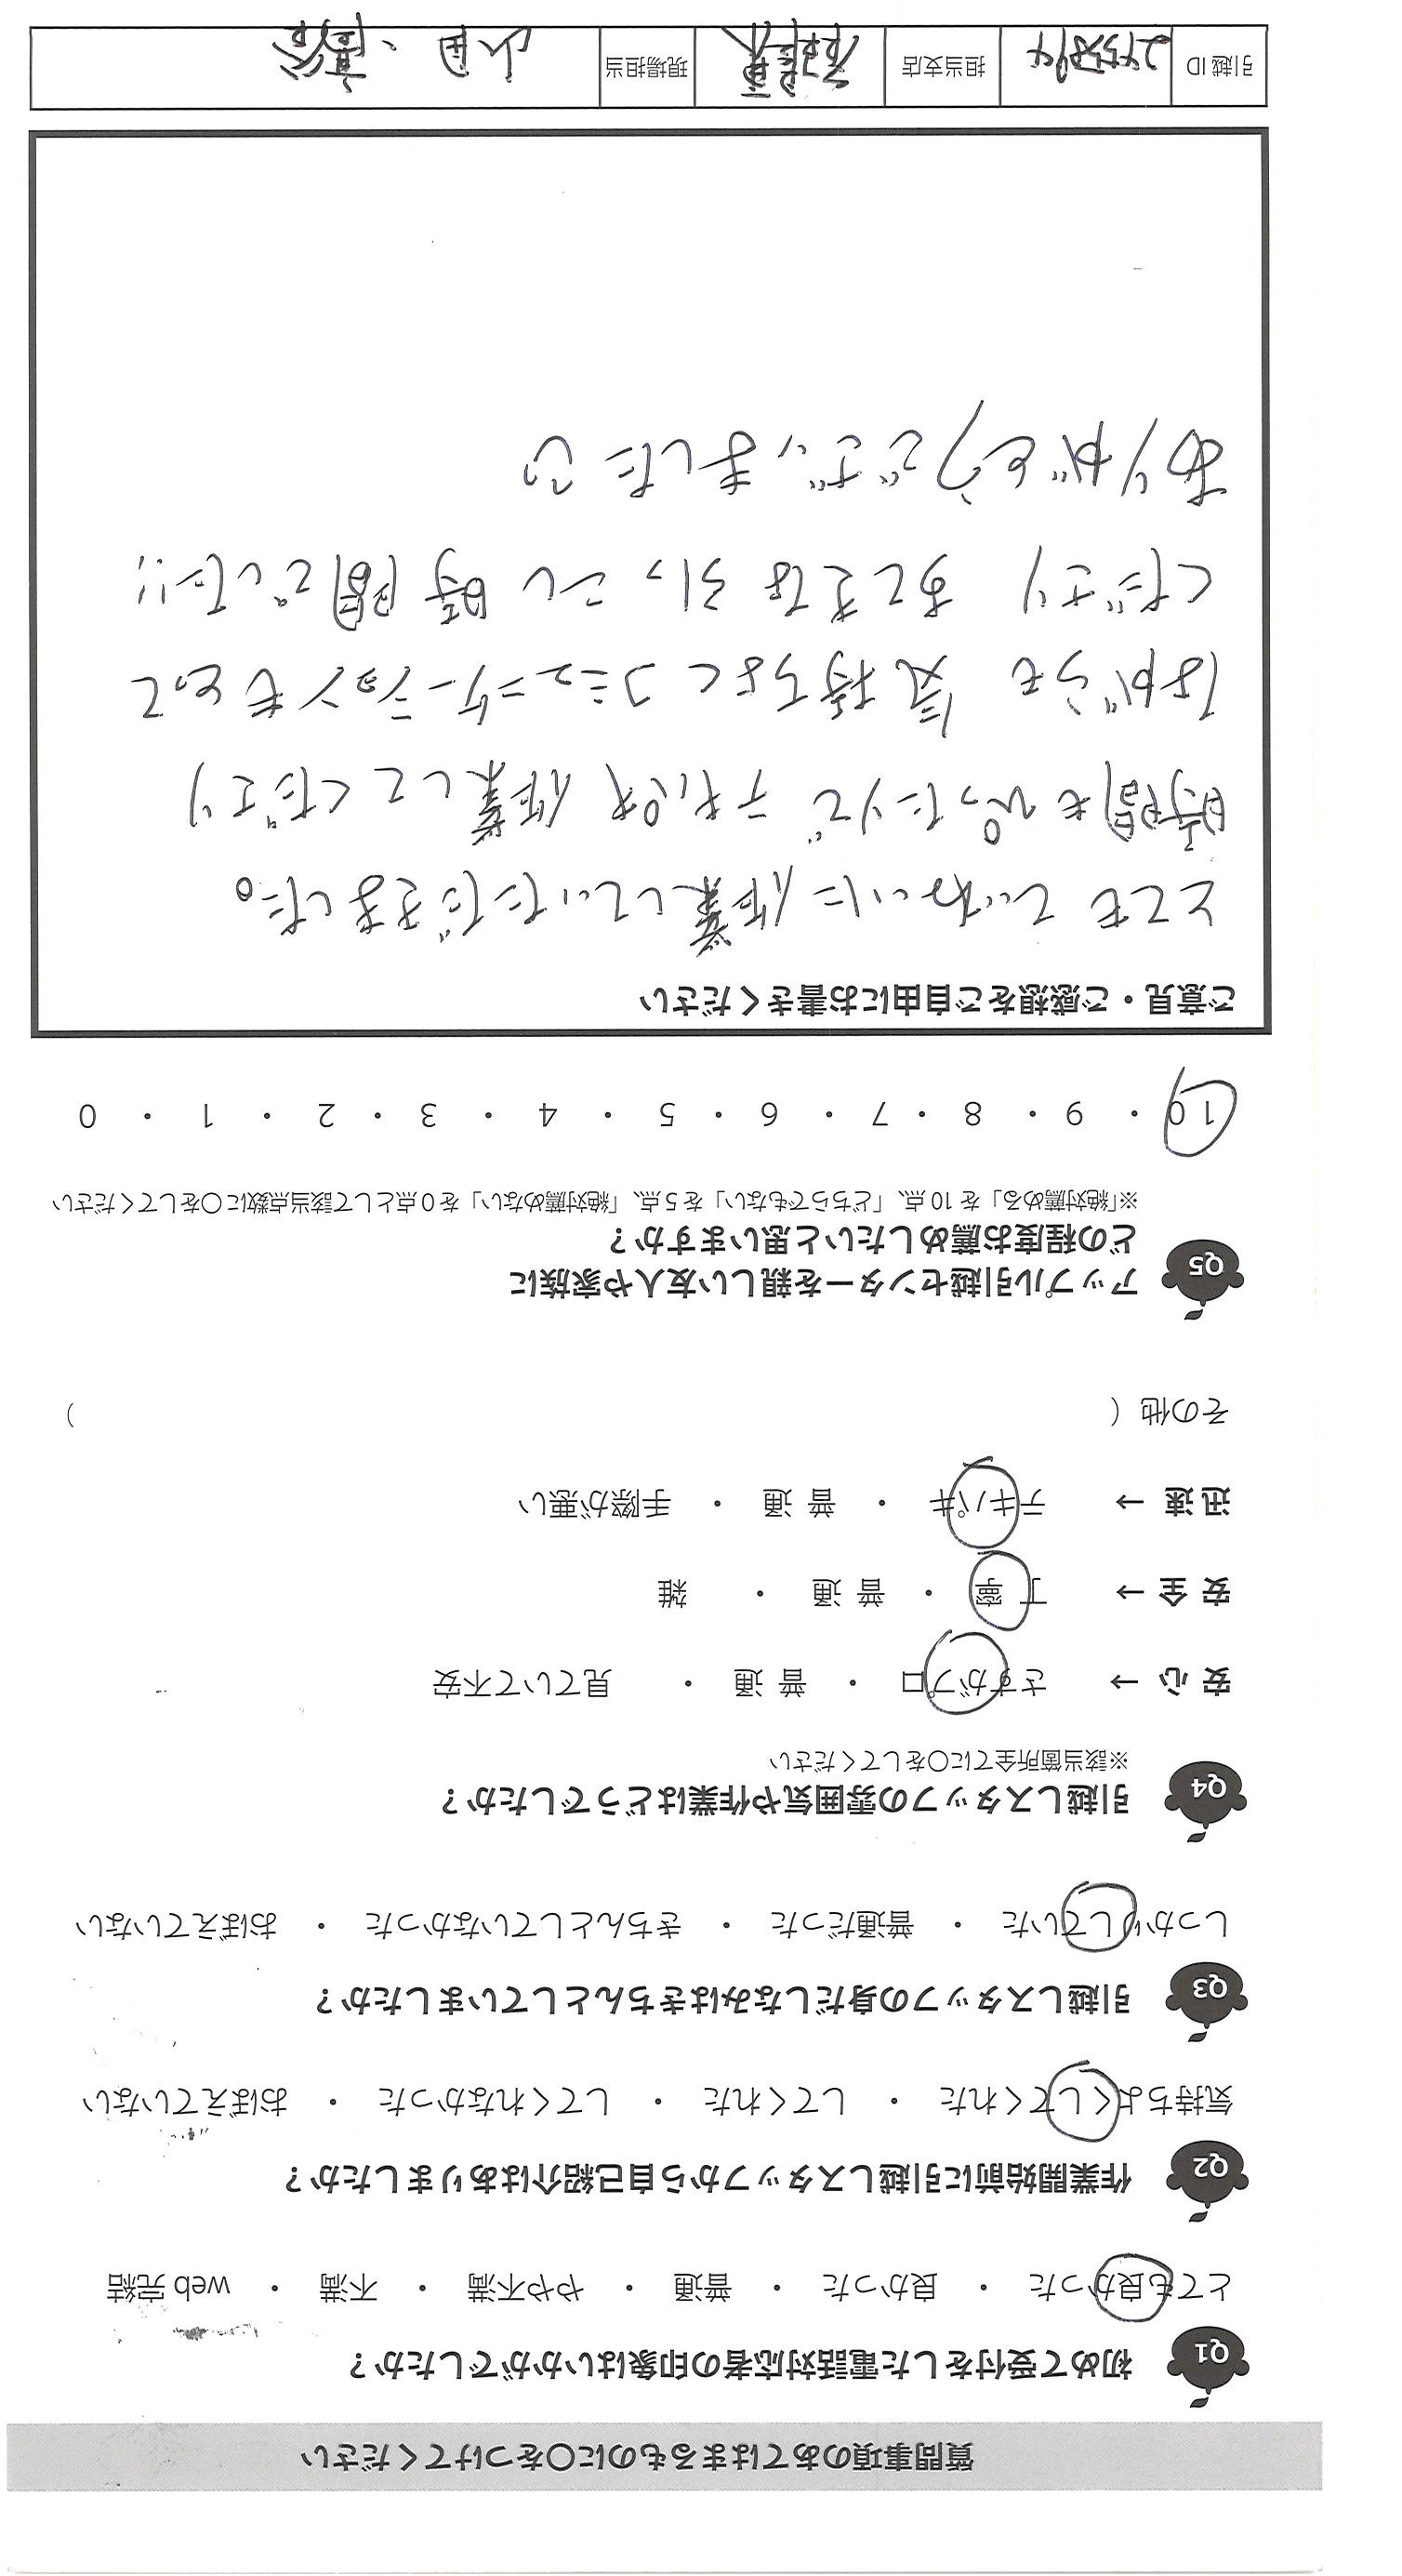 質問事項のあてはまるものに〇をつけてください
Q1 初めて受付をした電話対応者の印象はいかがでしたか?
とても良かった ・ 良かった ・ 普通 ・ やや不満 ・ 不満 ・ web 完結
Q2 作業開始前に引越しスタッフから自己紹介はありましたか?
気持ちよくしてくれた ・ してくれた ・ してくれなかった ・ おぼえていない
Q3 引越しスタッフの身だしなみはきちんとしていましたか?
しっかりしていた ・ 普通だった ・ きちんとしていなかった ・ おぼえていない
Q4 引越しスタッフの雰囲気や作業はどうでしたか?
※該当箇所全てに〇をしてください
安心 → さすがプロ ・ 普通 ・ 見ていて不安
安全 → 丁寧 ・ 普通 ・ 雑
迅速 → テキパキ ・ 普通 ・ 手際が悪い
その他 ( )
Q5 アップル引越センターを親しい友人や家族に
どの程度お薦めしたいと思いますか?
※「絶対薦める」を 10 点、「どちらでもない」を 5 点、「絶対薦めない」を 0 点として該当点数に〇をしてください
10 ・ 9 ・ 8 ・ 7 ・ 6 ・ 5 ・ 4 ・ 3 ・ 2 ・ 1 ・ 0
ご意見・ご感想をご自由にお書きください
とても ていねいに 作業していただきました。
時間も ぴったりで テキパキ 作業してくださり
ながらも 気持ちよく コミュニケーションもとって
くださり あしきな 引っこし 時間でした!!
ありがとうございました
引越 ID 担当支店 現場担当 山田、